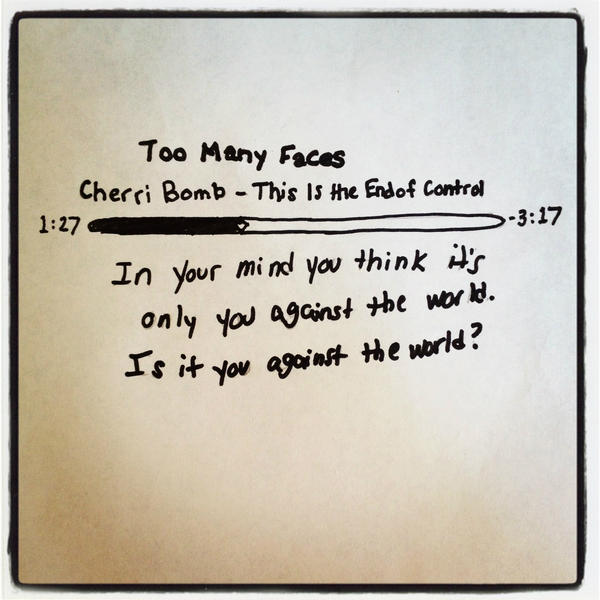 Too Many Faces
Cherri Bomb - This Is the End of Control
1:27 -3:17
In your mind you think it's
only you against the world.
Is it you against the world?